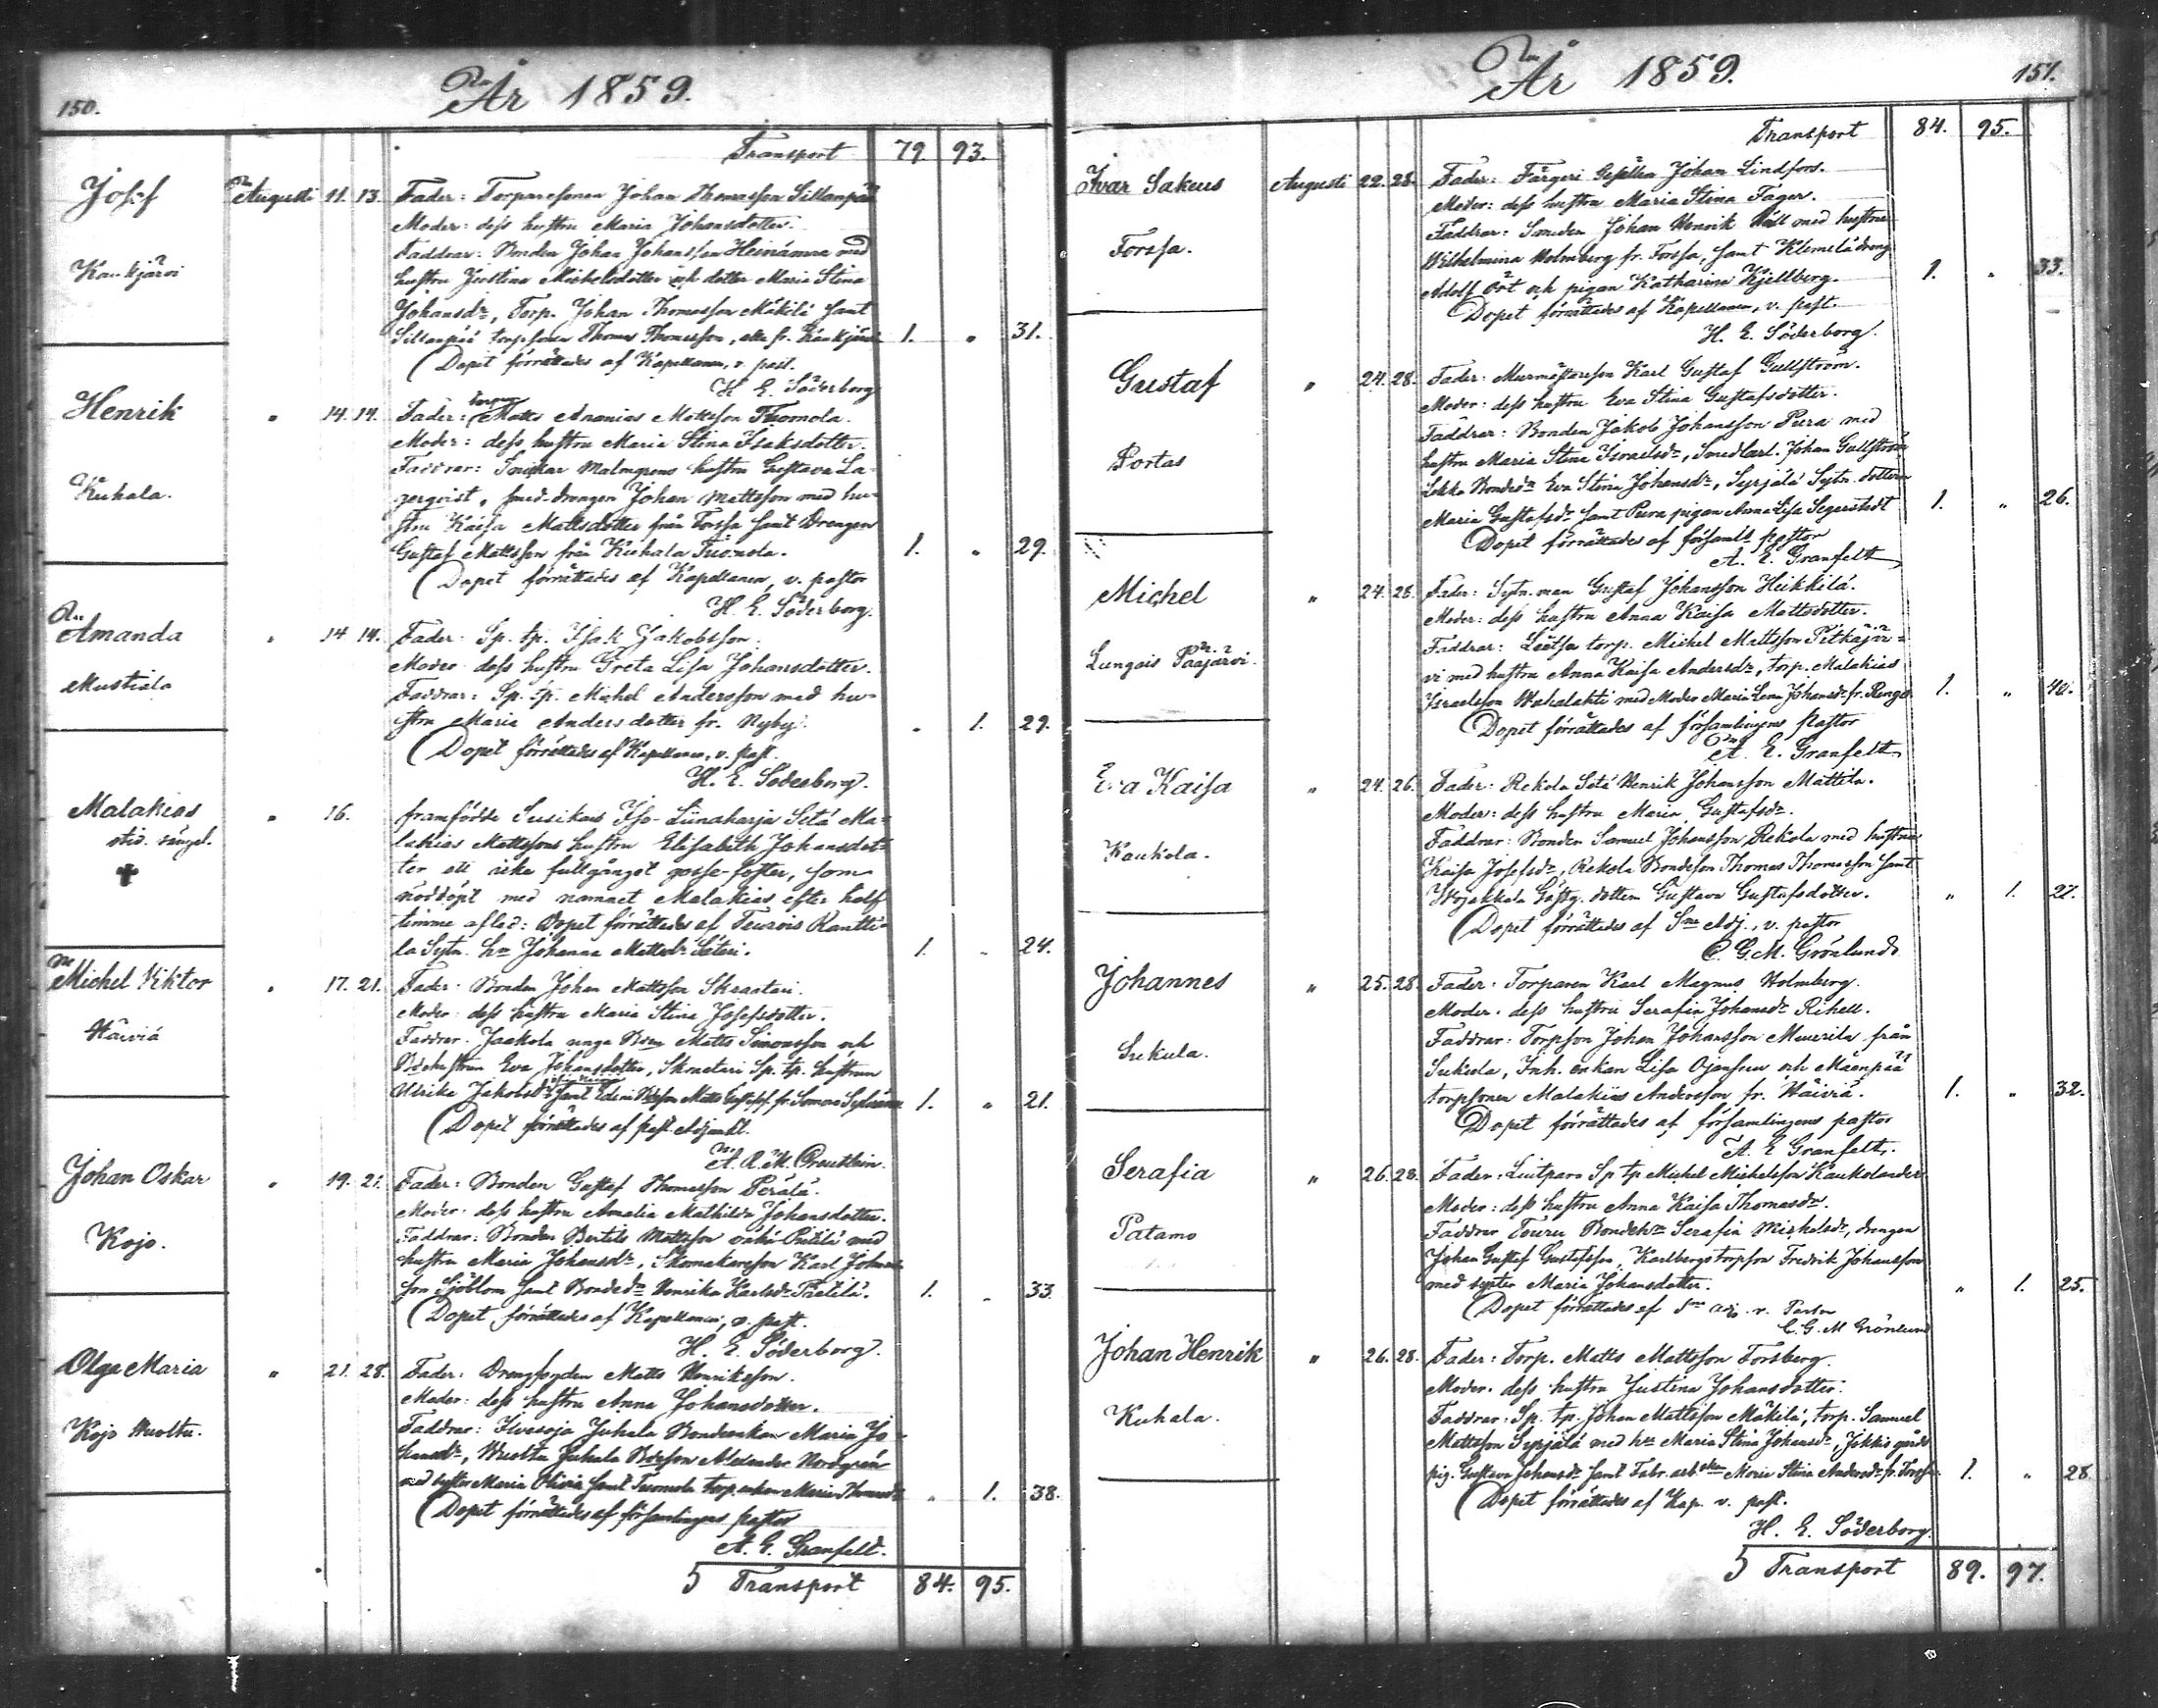 150.
År 1859.
Transport 79. 93.
Josef Augusti 11. 13. Fader: Torparesonen Johan Thomasson Sillanpää
Moder: dess hustru Maria Johansdotter.
Kaukjärvi
Faddrar: Bonden Johan Johansson Heinämaa med
hustru Justina Michelsdotter och dotter Maria Stina
Johansdr, Torp. Johan Thomasson Mäkilä samt
Sillanpää torpsonen Thomas Thomasson, alla fr. Kaukjärvi 1. " 31.
Dopet förrättades af Kapellanen, v. past.
H. E. Söderborg
Henrik " 14. 14. Fader: Matts Ananias Mattsson Tuomola.
Moder: dess hustru Maria Stina Isaksdotter.
Kuhala.
Faddrar: Snickar Malmgrens hustru Gustava La-
gerqvist, smed-drengen Johan Mattsson med hu-
stru Kaisa Mattsdotter från Forssa samt Drengen
Gustaf Mattsson från Kuhala Tuomola. 1. " 29.
Dopet förrättades af Kapellanen, v. pastor
H. E. Söderborg.
Amanda " 14 14. Fader: Sp. tp. Isak Jakobsson.
Moder dess hustru Greta Lisa Johansdotter.
Mustiala
Faddrar: Sp. tp. Michel Andersson med hu-
stru Maria Andersdotter fr. Nyby. " 1. 29.
Dopet förrättades af Kapellanen, v. past.
H. E. Söderborg.
Malakias " 16. framfödde Susikas Iso-Liinaharja Sētä Ma-
stid. vängel.
lakias Mattssons hustru Elisabeth Johansdot-
ter ett icke fullgånget gosse-foster, som
nöddöpt med namnet Malakias efter half
timme afled: Dopet förrättades af Teurois Rantti-
la Sytn. hu Johanna Mattsdr Säteri. 1. " 24.
Michel Viktor " 17. 21. Fader: Bonden Johan Mattsson Skraatari.
Moder: dess hustru Maria Stina Josefsdotter.
Häiviä
Faddrar: Jaakola unga Matts Simonsson och
Eva Johansdotter, Skraatari Sp. tp. hustrun
Ulrika Jakobsdr samt Matts fr. Somero 1. " 21.
Dopet förrättades af past. Adjunkt.
A. R. M.
Johan Oskar " 19. 21. Fader: Bonden Gustaf Thomasson Perälä.
Moder: dess hustru Amalia Mathilda Johansdotter.
Kojo.
Faddrar: Bonden Bertils Mattsson med
hustru Maria Johansdr, Skomakareson Karl Johans-
son Sjöblom samt Bondedr Henrika Karlsdr 1. " 33
Dopet förrättades af Kapellanen, v. past.
H. E. Söderborg.
Olga Maria " 21. 28. Fader: Drengfogden Matts Henriksson.
Moder: dess hustru Anna Johansdotter.
Kojo
Faddrar: Juhala Bondenkan Maria Jo-
hansdr, Juhala Alexander Nordgrén
med syster Maria Olivia samt Tuomola torp.enkan Maria " 1. 38.
Dopet förrättades af församlingens pastor
A. E. Granfelt.
5 Transport 84. 95.
År 1859.
151.
Transport 84. 95.
Ivar Sakeus Augusti 22. 28. Fader: Färgeri Gesällen Johan Lindfors.
Moder: dess hustru Maria Stina Fager.
Forssa.
Faddrar: Smeden Johan Henrik med hustru
Wilhelmina Holmberg fr. Forssa, samt Klemelä dreng
Adolf och pigan Katharina Kjellberg. 1. " 33.
Dopet förrättades af Kapellanen, v. past.
H. E. Söderborg.
Gustaf " 24. 28. Fader: Murmästareson Karl Gustaf Gullström.
Moder: dess hustru Eva Stina Gustafsdotter.
Portas
Faddrar: Bonden Jakob Johansson Pura med
hustru Maria Stina Israelsdr, Smedlärl. Johan Gullström,
Bondedr Eva Stina Johansdr, Syrjälä Sytn. dottern
Maria Gustafsdr samt Pura pigan Anna Lisa Segerstedt 1. " 26.
Dopet förrättades af församl. pastor
A. E. Granfelt
Michel " 24. 28. Fader: Sytn. man Gustaf Johansson Heikkilä.
Moder: dess hustru Anna Kaisa Mattsdotter.
Lungois Pääjärvi.
Faddrar: torp. Michel Mattsson Pitkäjär-
vi med hustru Anna Kaisa Andersdr, torp. Malakias
Israelsson med Moder Maria Lena Johansdr fr. 1. " 40.
Dopet förrättades af församlingens pastor
A. E. Granfelt.
Eva Kaisa " 24. 26. Fader: Rekola Setä Henrik Johansson Mattila.
Moder: dess hustru Maria Gustafsdr.
Kaukola.
Faddrar: Bonden Samuel Johansson Rekola med hustru
Kaisa Josefsdr, Rekola Bondeson Thomas Thomasson samt
Wojakkala Gästg. dottern Gustava Gustafsdotter. " 1. 27.
Dopet förrättades af Sne Adj., v. pastor
C. G. M. Grönlund
Johannes " 25. 28. Fader: Torparen Karl Magnus Holmberg.
Moder: dess hustru Serafia Johansdr Rihell.
Sukula.
Faddrar: Torpson Johan Johansson Muurila från
Sukula, Inh. enkan Lisa och Mäenpää
torpsonen Malakias Andersson fr. Häiviä. 1. " 32.
Dopet förrättades af församlingens pastor
A. E. Granfelt.
Serafia " 26. 28. Fader: Sp tp Michel Michelsson Kaukolander.
Moder: dess hustru Anna Kaisa Thomasdr.
Patamo
Faddrar Touru Bondehu Serafia Michelsdr, drengen
Johan Gustaf Gustafsson, Karlbergs torpson Fredrik Johansson
med syster Maria Johansdotter. " 1. 25.
Dopet förrättades af Sne adj. v. Pastor
C. G. M Grönlund
Johan Henrik " 26. 28. Fader: Torp. Matts Mattsson Forsberg.
Moder: dess hustru Justina Johansdotter.
Kuhala.
Faddrar: Sp. tp. Johan Mattsson Mäkilä, torp. Samuel
Mattsson Syrjälä med hu Maria Stina Johansdr, Jokkis gårds
pig. Gustava Johansdr samt Fabr. arb. Maria Stina Andersdr fr. Forssa. 1. " 28
Dopet förrättades af Kap. v. past.
H. E. Söderborg.
5 Transport 89. 97.